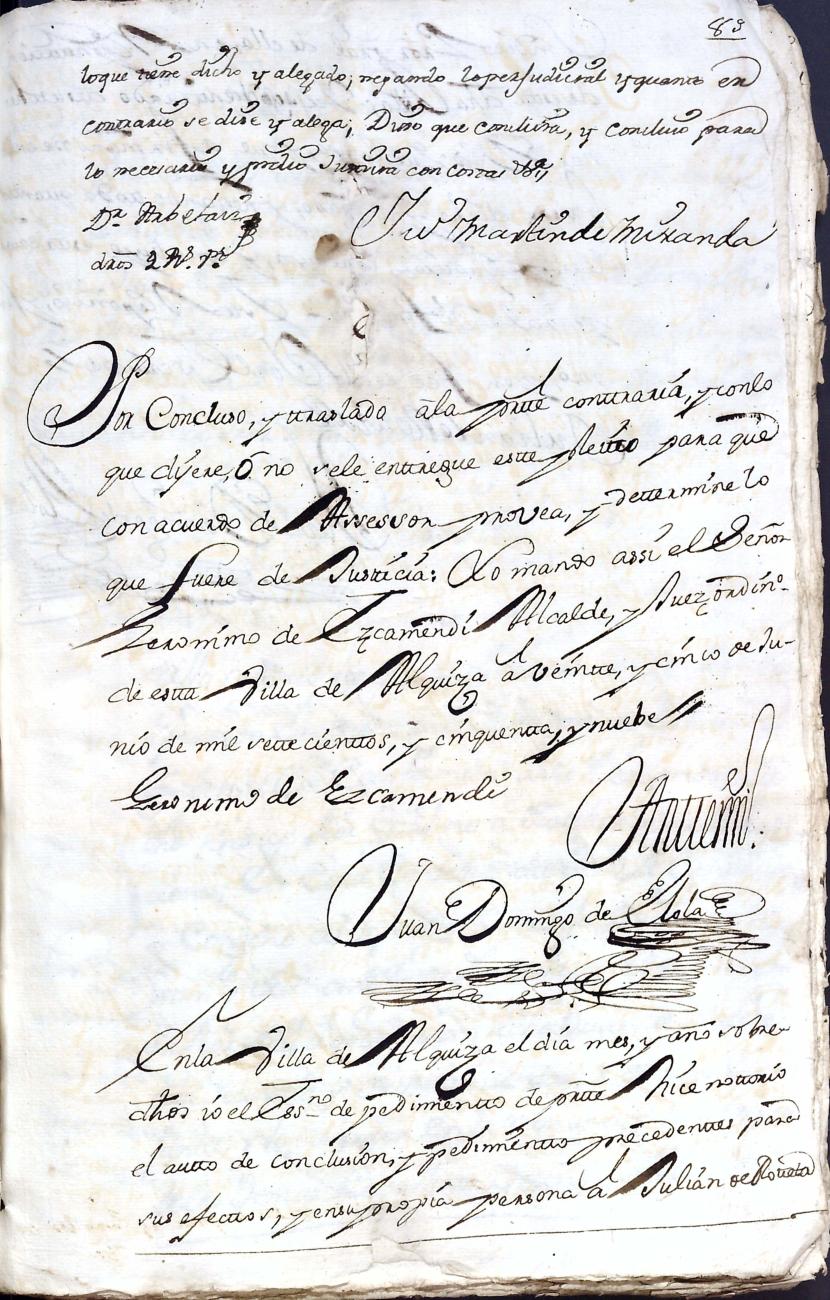 83
loque tiene dicho y alegado; negando loperJudicial yquanto en
contrario se dise y alega; Dixo que concluia, y concluio para
lo necesario y pidio Justicia con costas &a
Dr Arbelaiz
dros 2 Rs. Pta
Ju° Martin de Miranda
Por Concluso, y traslado ála partte contraria, y conlo
que dijere, ó no sele entregue este pleitto para que
con acuerdo de Assessor provea, y dettermine lo
que fuere de Justicia: Lo mando assi el Señor
Geronimo de Ezcamendi Alcalde, y Juez ordin°
de esta Villa de Alquiza á veintte, y cinco de Ju-
nio de mil settecienttos, y cinquentta, y nuebe
Geronimo de Ezcamendi
Anttemi.
Juan Domingo de Elola
Enla Villa de Alquiza el dia mes, y año sobre-
dhos io el Essno de pedimentto de partte hice nottorio
el autto de conclusion, y pedimentto precedenttes para
sus efecttos, y ensu propia persona á Julian de Rotteta